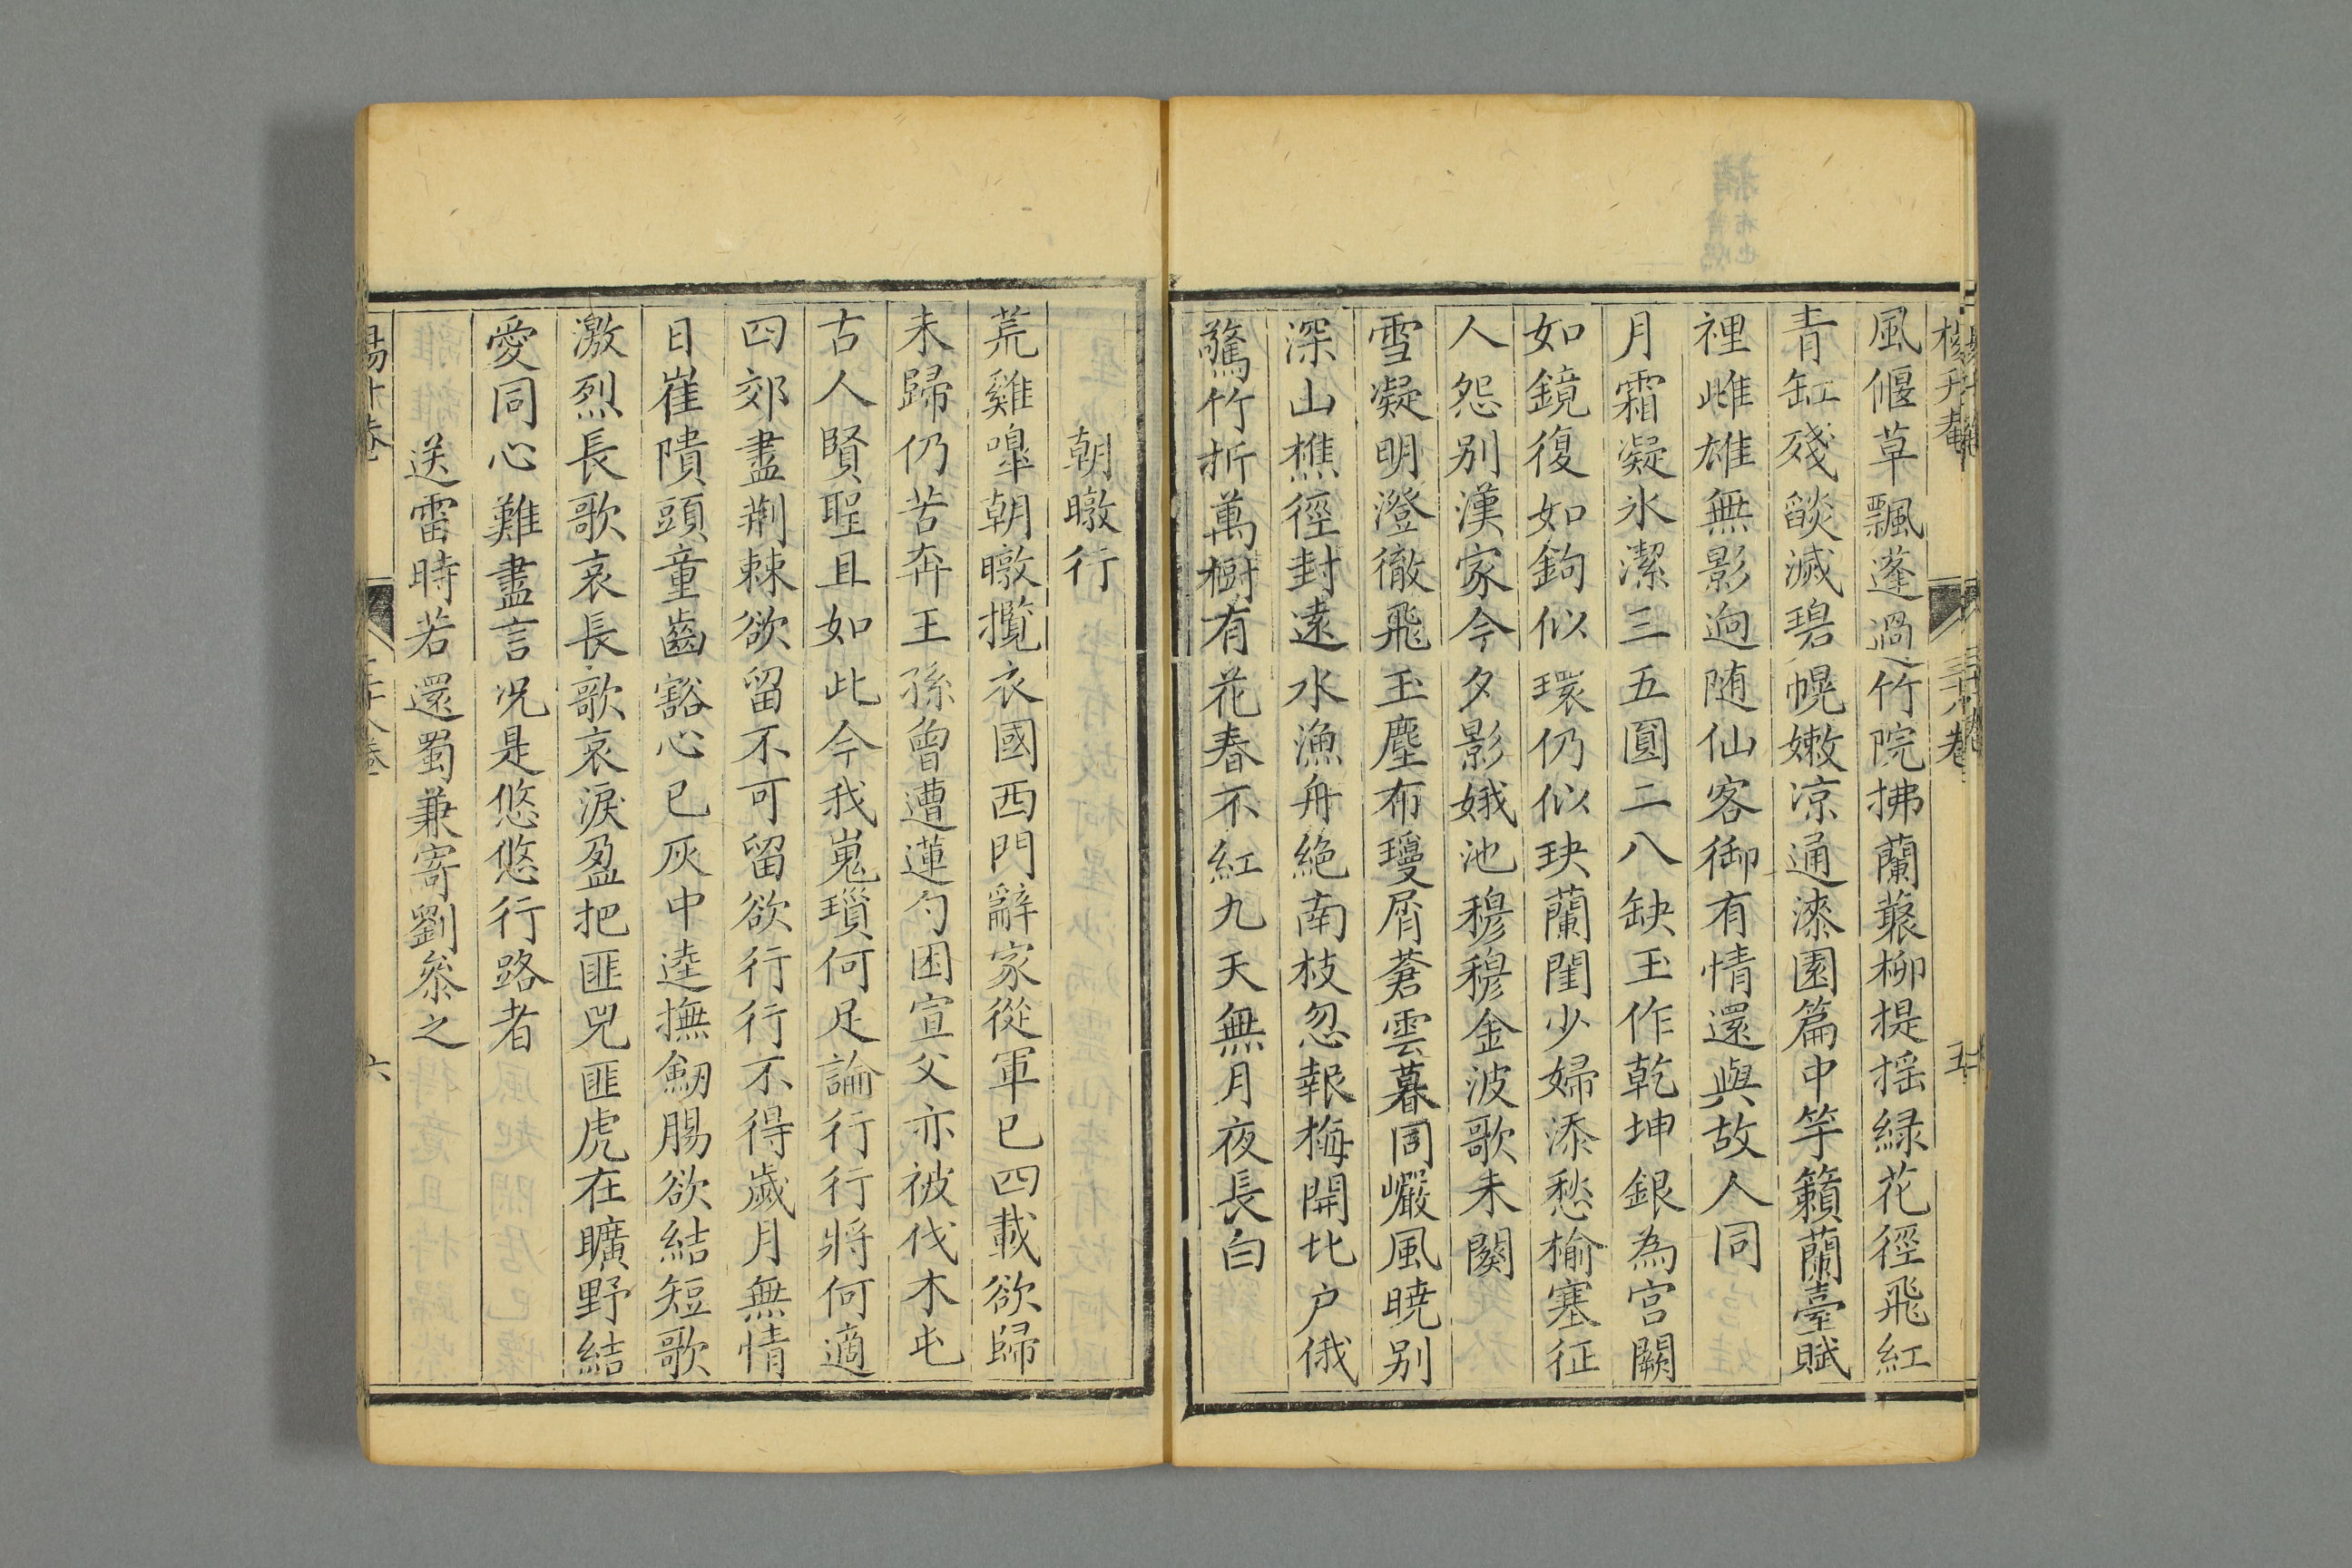 風偃草飄蓬過竹院拂蘭䕺柳提揺緑花徑飛紅
青缸殘燄滅碧幌嫩凉通漆園篇中竽籟蘭臺賦
裡雌雄無影逈随仙客御有情還與故人同
月霜凝氷潔三五圓二八缺玉作乾坤銀為宮闕
如鏡復如鉤似環仍似玦蘭閨少婦添愁榆塞征
人怨别漢家今夕影娥池穆穆金波歌未闋
雪凝明澄徹飛玉塵布瓊屑蒼雲暮同巖風曉别
深山樵徑封遠水漁舟絶南枝忽報梅開北户俄
驚竹折萬樹有花春不紅九天無月夜長白
朝暾行
荒雞嘷朝暾攬衣國西門辭家從軍已四載欲歸
未歸仍苦奔王孫曾遭蓮勺困宣父亦被伐木屯
古人賢聖且如此今我嵬瑣何足論行行將何適
四郊盡荆棘欲留不可留欲行行不得歲月無情
日崔隤頭童齒豁心已灰中逵撫劒腸欲結短歌
激烈長歌哀長歌哀淚盈把匪兕匪虎在曠野結
愛同心難盡言况是悠悠行路者
送雷時若還蜀兼寄劉叅之